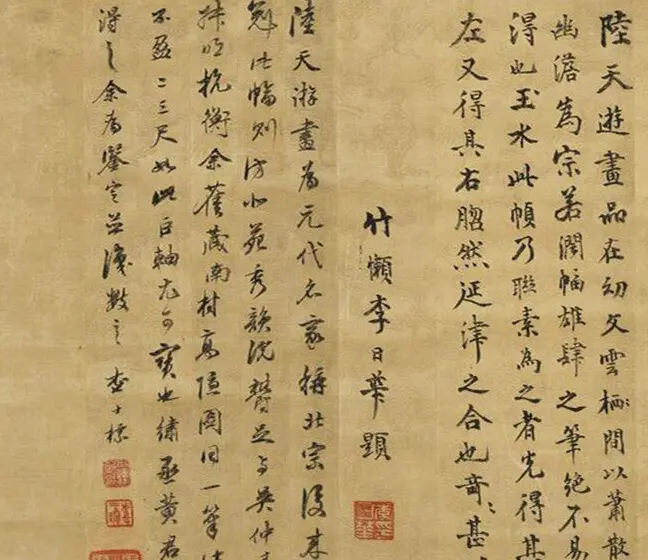 陸天遊畫品在幼文雲栖間以蕭散
幽澹為宗若濶幅雄肆之筆絶不易
得也玉水此幀乃聯素為之者先得其
左又得其右脗然延津之合也奇〻甚
竹嬾李日華題
陸天游畫為元代名家稱北宗後来
此幅則仿北苑秀韻沈鬱足与吳仲
叔明抗衡余舊藏南村高隱圖同一筆法
不盈二三尺如此巨軸尤可寶也繡丞黃君
得之余為鑒定并識數之查士標